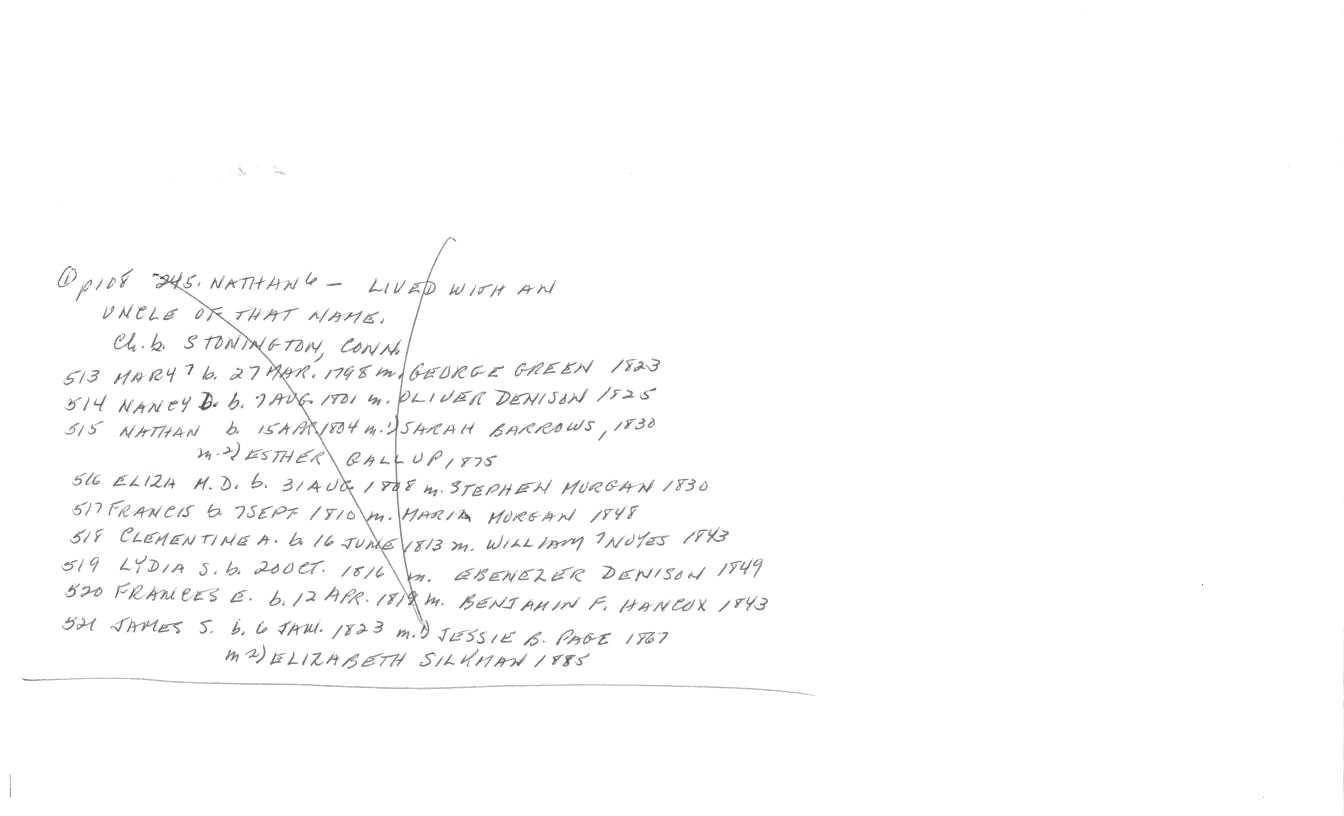 ① p108 245. NATHAN 6 — LIVED WITH AN
UNCLE OF THAT NAME.
Ch. b. STONINGTON, CONN.
513 MARY 7 b. 27 MAR. 1798 m. GEORGE GREEN 1823
514 NANCY D. b. 7 AUG. 1801 m. OLIVER DENISON 1825
515 NATHAN b. 15 APR. 1804 m. 1) SARAH BARROWS, 1830
m. 2) ESTHER GALLUP, 1875
516 ELIZA M. D. b. 31 AUG. 1808 m. STEPHEN MORGAN 1830
517 FRANCIS b. 7 SEPT 1810 m. MARIA MORGAN 1848
518 CLEMENTINE A. b. 16 JUNE 1813 m. WILLIAM NOYES 1843
519 LYDIA S. b. 20 OCT. 1816 m. EBENEZER DENISON 1849
520 FRANCES E. b. 12 APR. 1819 m. BENJAMIN F. HANCOX 1843
521 JAMES S. b. 6 JAN. 1823 m. 1) JESSIE B. PAGE 1867
m 2) ELIZABETH SILKMAN 1885